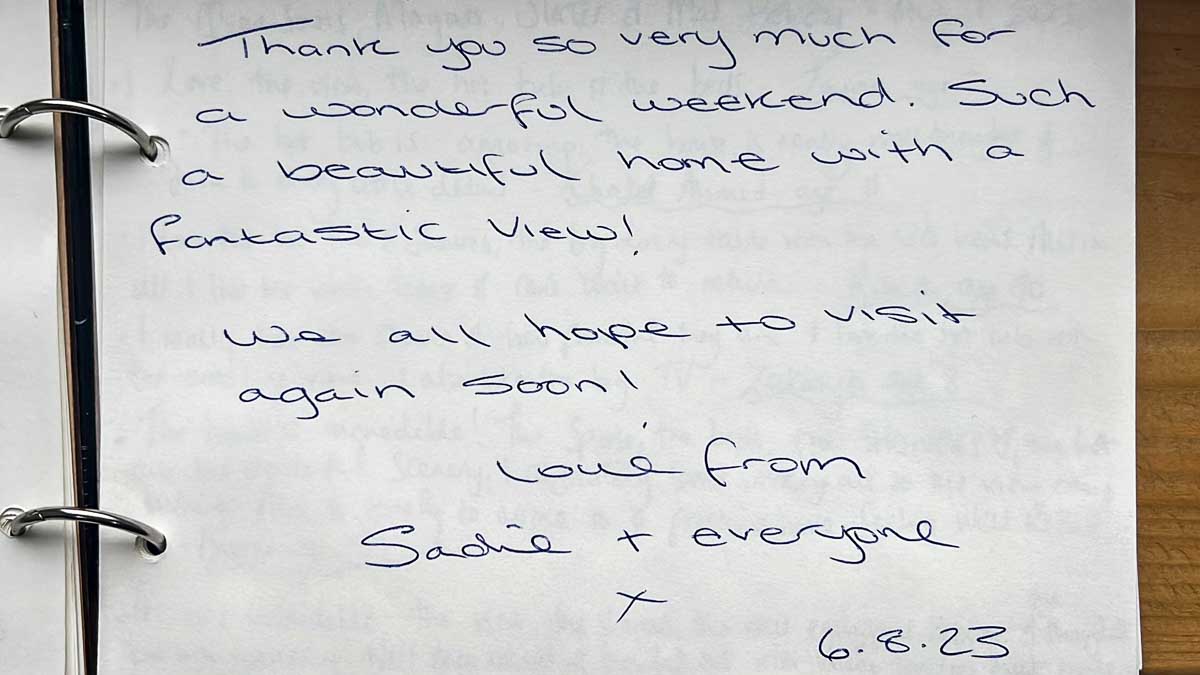 Thank you so very much for
a wonderful weekend. Such
a beautiful home with a
fantastic view!
We all hope to visit
again soon!
Love from
Sadie + everyone
x
6.8.23